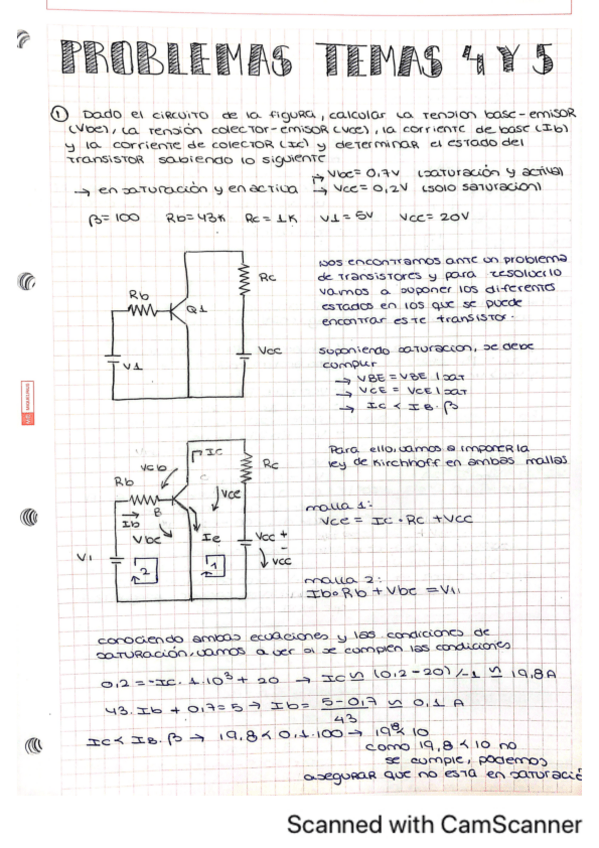 PROBLEMAS TEMAS 4 Y 5
① Dado el circuito de la figura, calcular la tension base-emisor
(Vbe), la tensión colector-emisor (Vce), la corriente de base (Ib)
y la corriente de colector (Ic) y determinar el estado del
transistor sabiendo lo siguiente
→ en saturación y en activa
→ Vbe = 0,7V (saturación y activa)
→ Vce = 0,2V (solo saturación)
β = 100 Rb = 43K Rc = 1K V1 = 5V Vcc = 20V
Rb
Q1
Rc
Vcc
V1
Nos encontramos ante un problema
de transistores y para resolverlo
vamos a suponer los diferentes
estados en los que se puede
encontrar este transistor.
suponiendo saturacion, se debe
cumplir
→ VBE = VBE |sat
→ VCE = VCE |sat
→ Ic < IB.β
Ic
Vcb
Rc
Rb
C
Vce
B
Ib
Vbe
Ie
Vcc +
-
Vcc
V1
2
1
Para ello, vamos a imponer la
ley de Kirchhoff en ambas mallas
malla 1:
Vce = Ic · Rc + Vcc
malla 2:
Ib · Rb + Vbe = V1
conociendo ambas ecuaciones y las condiciones de
saturación, vamos a ver si se cumplen las condiciones
0,2 = -Ic · 1·10³ + 20 → Ic ≃ (0,2-20)/-1 ≃ 19,8A
43·Ib + 0,7 = 5 → Ib = 5-0,7 / 43 ≃ 0,1 A
Ic < IB·β → 19,8 < 0,1·100 → 19,8 < 10
como 19,8 < 10 no
se cumple, podemos
asegurar que no está en saturació
Scanned with CamScanner